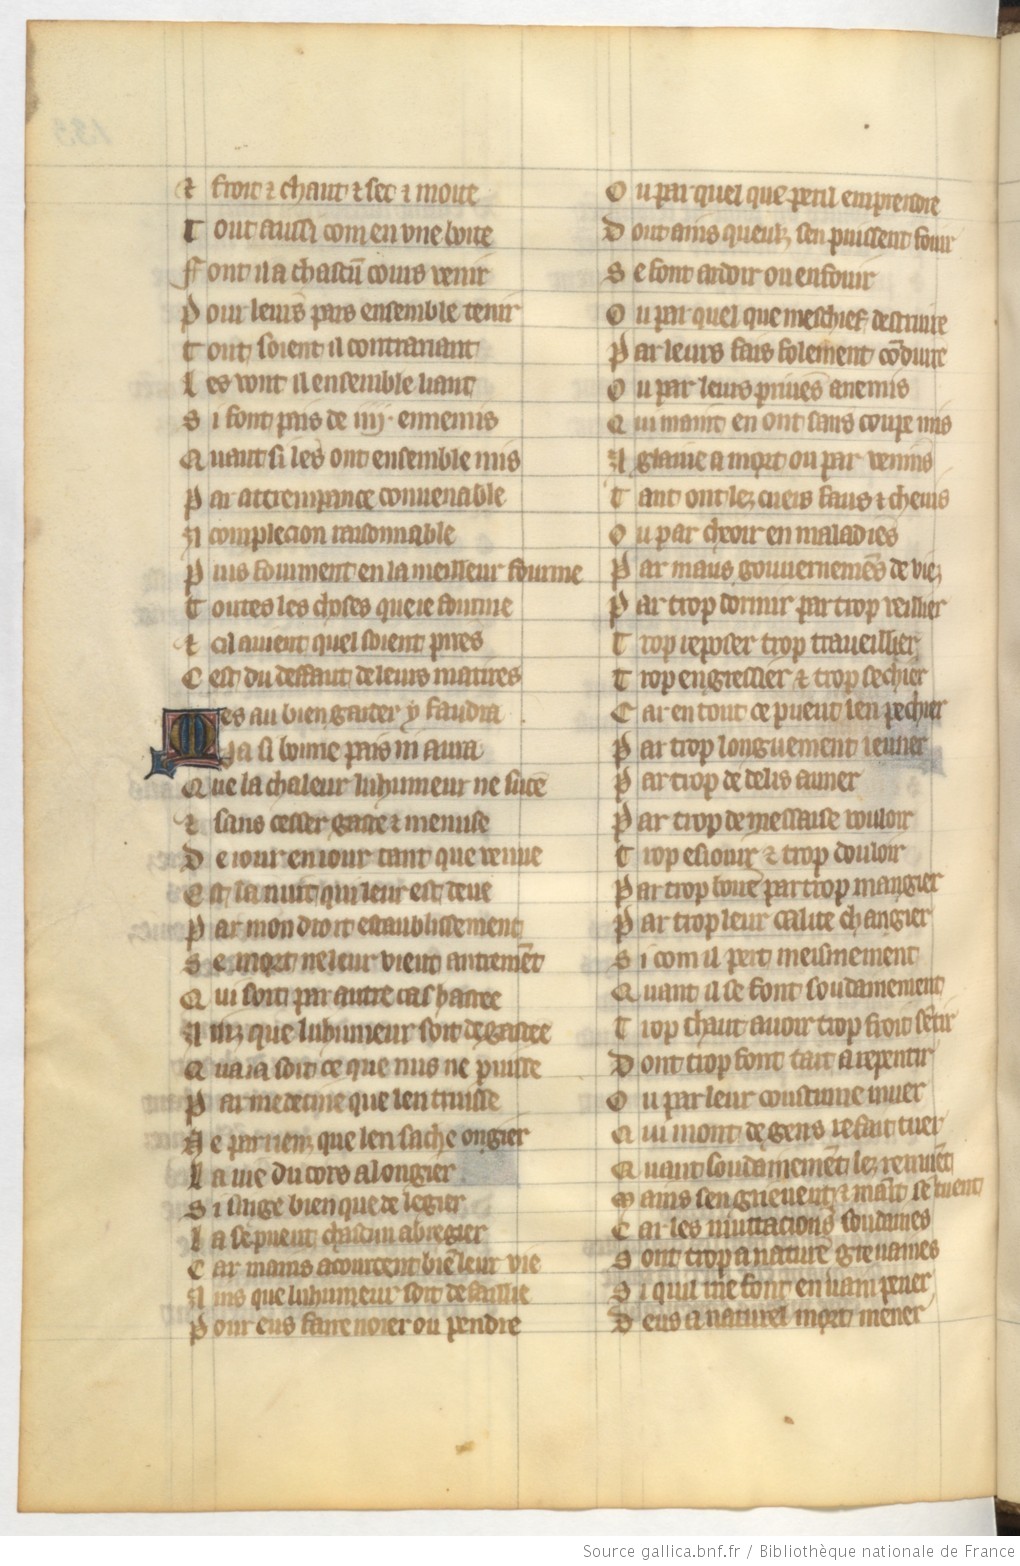 ⁊ froit ⁊ chaut ⁊ sec ⁊ moite
T out aussi com en vne boite
ff ont il a chascũ cours venir
P our leurs pais ensemble tenir
T out soient il contrariant
L es vont il ensemble liant
S i font pais de iiij. ennemis
Q uant si les ont ensemble mis
P ar attrempance conuenable
A complecion raisonnable
P our fourment en la meilleur fourme
T outes les choses que ie fourme
⁊ sil auient quel soient pires
C est du deffaut de leurs matires
M es au bien garder y faudra
Ja si bonne pais ni aura
Q ue la chaleur luhumeur ne suce
⁊ sans cesser gaste ⁊ menuse
D e iour en iour tant que venue
E st la mort qui leur est deue
P ar mon droit establissement
S e mort ne leur vient autremẽt
Q ui soit par autre cas hastee
A inz que luhumeur soit degastee
Q ua ia soit ce que nus ne puisse
P ar medecine que len truisse
N e par riens que len sache ongier
L a vie du cors alongier
S i sai ge bien que de legier
L a se puent chascun abregier
C ar mains acourcent biẽ leur vie
A ins que luhumeur soit defaillie
P our eus faire noier ou pendre
O u par quel que peril emprendre
D ont ains queulz sen puissent fouir
S e font ardoir ou enfouir
O u par quel que meschief destruire
P ar leurs fais folement cõduire
O u par leurs priues anemis
Q ui maint en ont sans coupe mis
A glaiue a mort ou par venins
T ant ont les cuers faus ⁊ cheuis
O u par cheoir en maladies
P ar maus gouuernemẽs de vies
P ar trop dormir par trop veillier
T rop reposer trop traueillier
T rop engressier ⁊ trop sechier
C ar en tout ce puent len pechier
P ar trop longuement ieuner
P ar trop de delis auner
P ar trop de messaise vouloir
T rop esioir ⁊ trop douloir
P ar trop boire par trop mangier
P ar trop leur calite changier
S i com il pert meismement
Q uant il se font soudainement
T rop chaut auoir trop froit sẽtir
D ont trop font tart a repentir
O u par leur coustume muer
Q ui mont de gens refait tuer
Q uant soudainemẽt les remuẽt
M ains sen grieuent ⁊ maĩt sẽ tuent
C ar les mutacions soudaines
S ont trop a nature greuaines
S i quil me font en vain pener
D eus a naturel mort mener
Source gallica.bnf.fr / Bibliothèque nationale de France